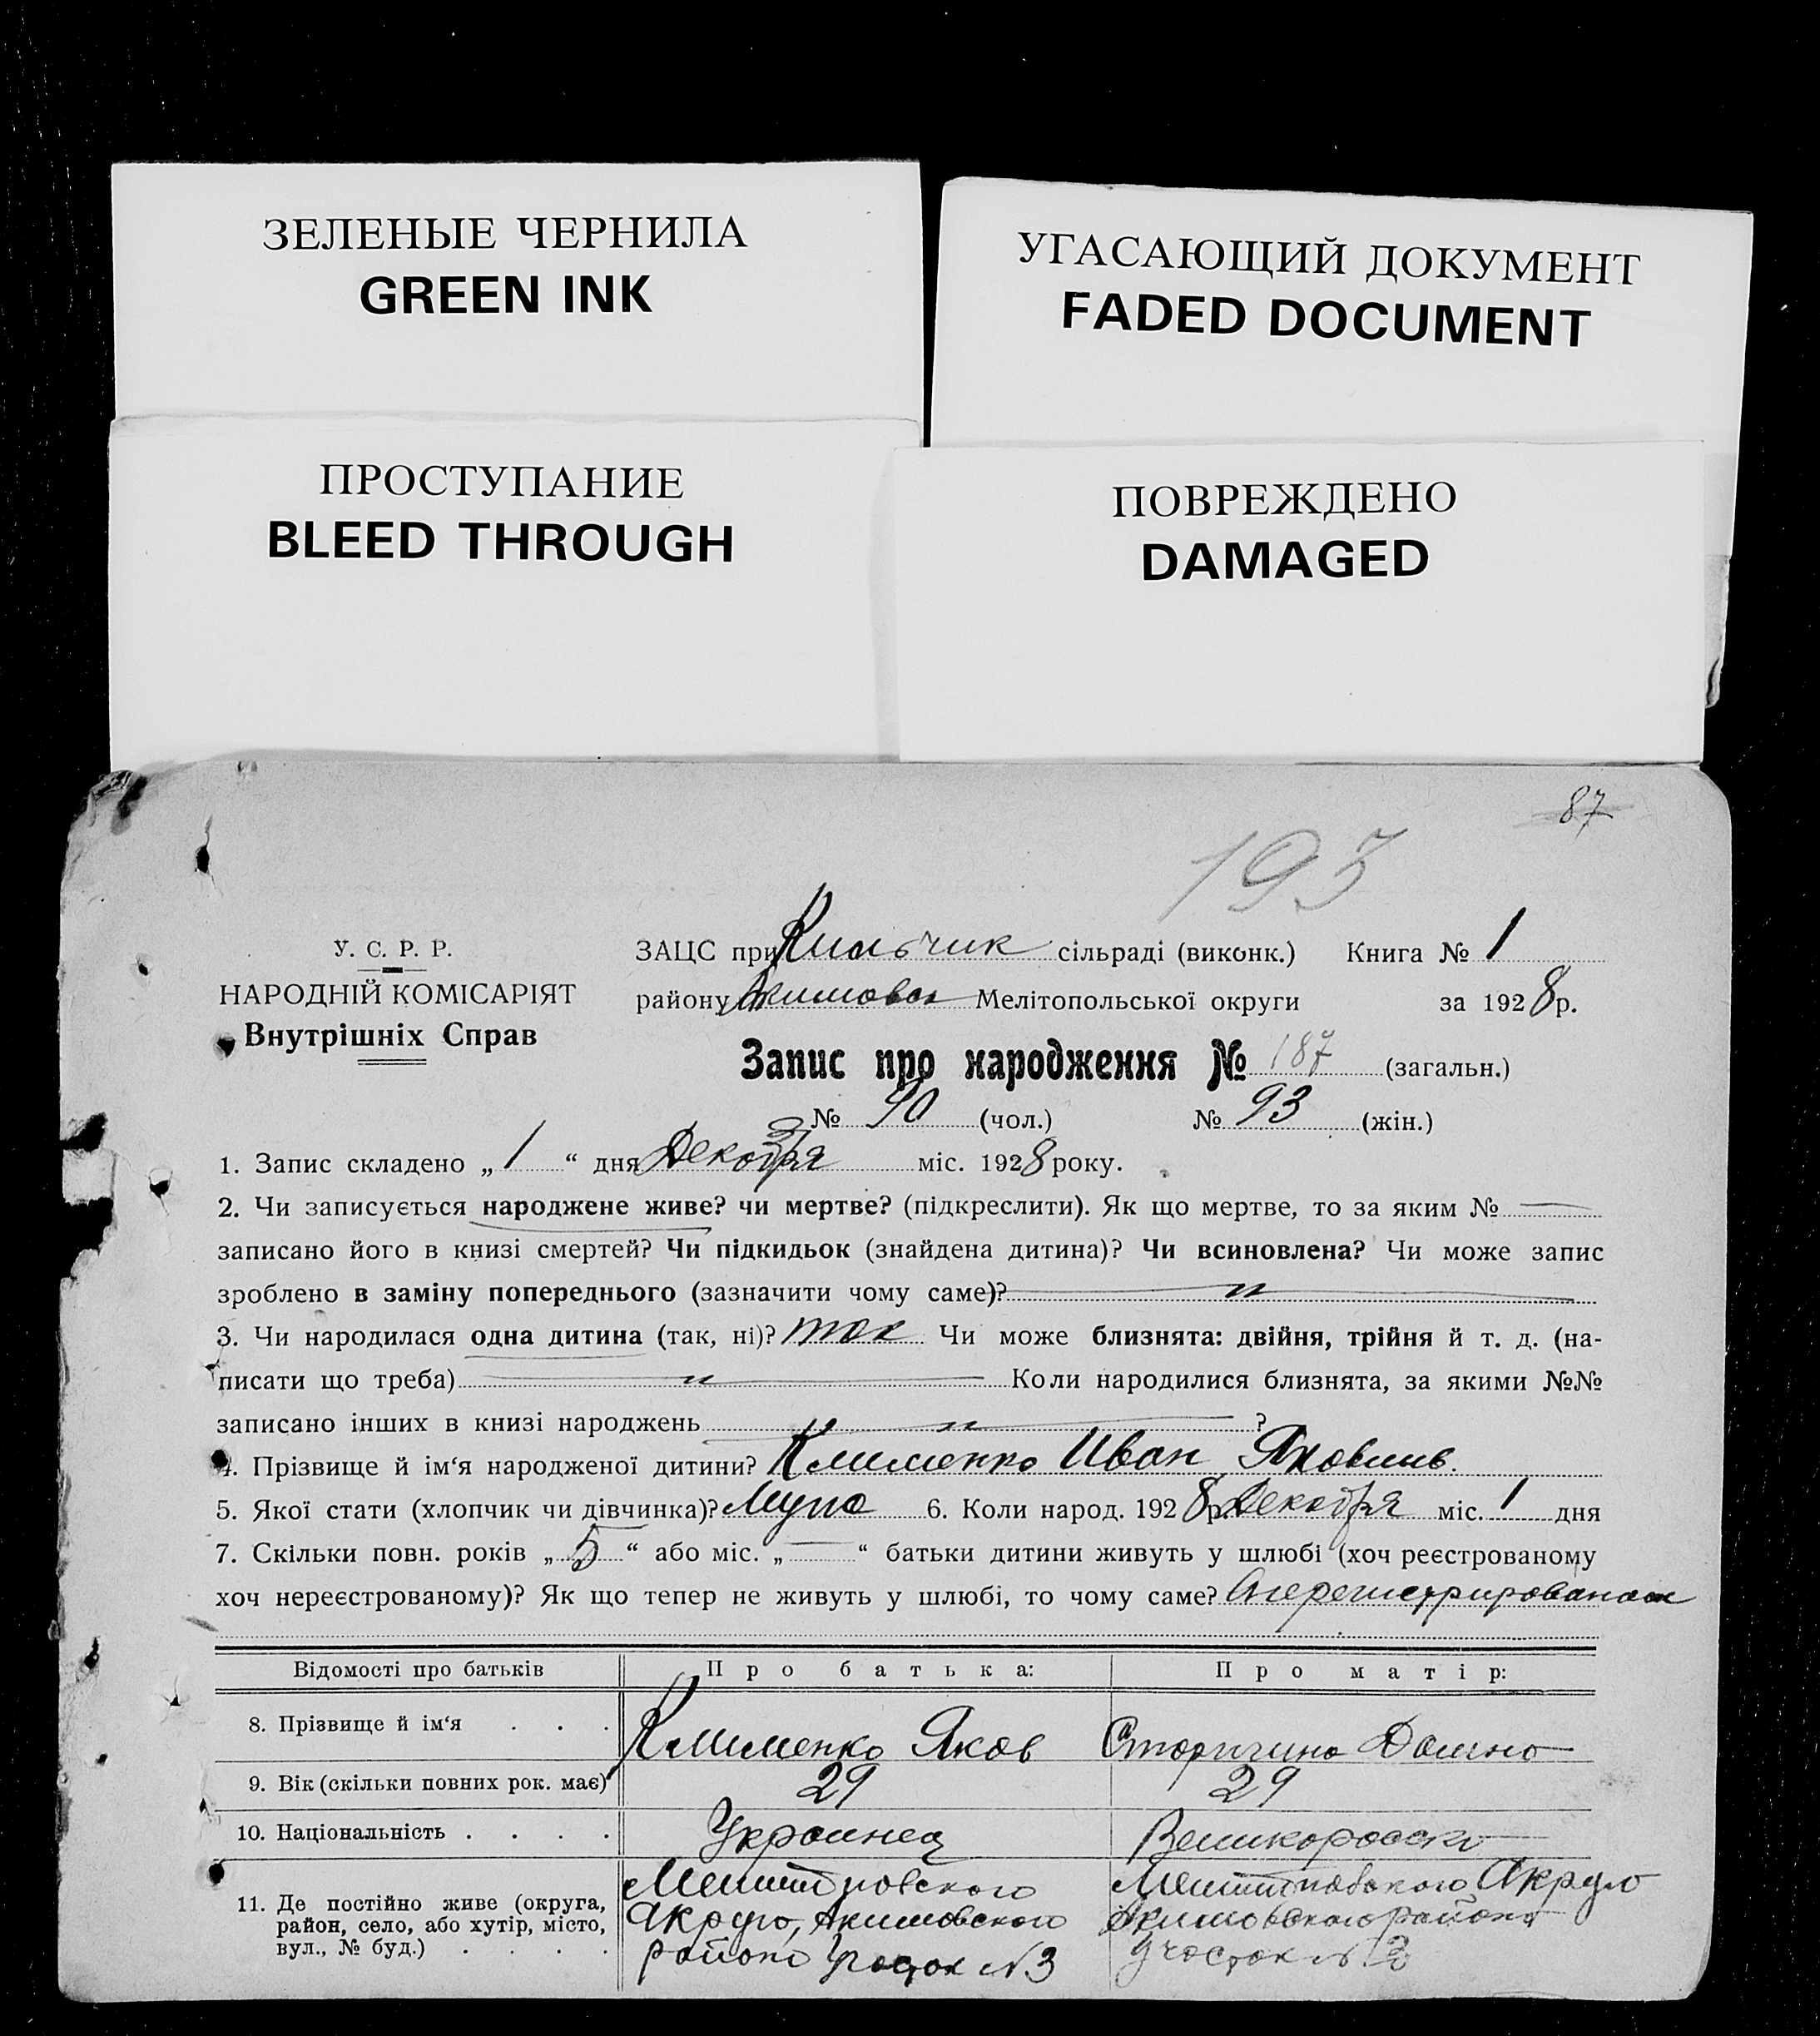 ЗЕЛЕНЫЕ ЧЕРНИЛА
GREEN INK
УГАСАЮЩИЙ ДОКУМЕНТ
FADED DOCUMENT
ПРОСТУПАНИЕ
BLEED THROUGH
ПОВРЕЖДЕНО
DAMAGED
87
193
У. С. Р. Р.
НАРОДНІЙ КОМІСАРІЯТ
Внутрішніх Справ
ЗАЦС при Кильчик сільраді (виконк.) Книга № 1
району Акимовск Мелітопольської округи за 1928 р.
Запис про народження № 187 (загальн.)
№ 90 (чол.) № 93 (жін.)
1. Запис складено „ 1 “ дня Декабря міс. 1928 року.
2. Чи записується народжене живе? чи мертве? (підкреслити). Як що мертве, то за яким № —
записано його в книзі смертей? Чи підкидьок (знайдена дитина)? Чи всиновлена? Чи може запис
зроблено в заміну попереднього (зазначити чому саме)? — „ —
3. Чи народилася одна дитина (так, ні)? так Чи може близнята: двійня, трійня й т. д. (на-
писати що треба) — „ — Коли народилися близнята, за якими №№
записано інших в книзі народжень — „ — ?
4. Прізвище й ім‘я народженої дитини? Клименко Иван Яковлив.
5. Якої стати (хлопчик чи дівчинка)? 6. Коли народ. 1928 р. Декабря міс. 1 дня
7. Скільки повн. років „ 5 “ або міс. „ — “ батьки дитини живуть у шлюбі (хоч реєстрованому
хоч нереєстрованому)? Як що тепер не живуть у шлюбі, то чому саме?
Відомості про батьків
Про батька:
Про матір:
8. Прізвище й ім‘я . . .
Клименко Яков
9. Вік (скільки повних рок. має)
29
29
10. Національність . . . .
Украинец
Великоросска
11. Де постійно живе (округа,
район, село, або хутір, місто,
вул., № буд.) . . . .
Округа, Акимовского
района Участок №3
Акимовского района
Участок №